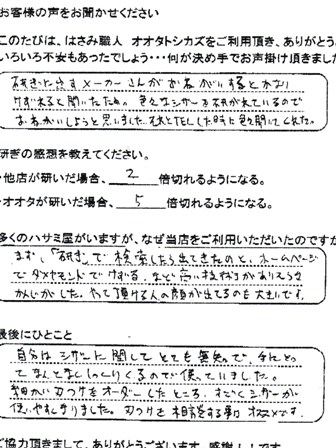 お客様の声をお聞かせください
このたびは、はさみ職人 オオタトシカズをご利用頂き、ありがとう
いろいろ不安もあったでしょう・・・何が決め手でお声掛け頂きました
研ぎに出す メーカーさんが お願いするとかなり
けずれると聞いたため。色々なシザーを研がれているので
おねがいしようと思いました。 TELした時に色々聞いてくれた。
研ぎの感想を教えてください。
・他店が研いだ場合、 2 倍切れるようになる。
・オオタが研いだ場合、 5 倍切れるようになる。
多くのハサミ屋がいますが、なぜ当店をご利用いただいたのですか
まず、「研ぎ」で検索したら出てきたのと、ホームページ
でダイヤモンドでけずる、など高い技術がありそうな
かんじがした。やって頂ける人の顔が出てるのも大きいです。
最後にひとこと
自分はシザーに関してとても無知で、手にとって
なんとなくしっくりくるので使っていました。
細かい刃つけをオーダーしたところ、すごくシザーが
使いやすくなりました。刃つけを相談する事 オススメです。
ご協力頂きまして、ありがとうございます。感謝!!です